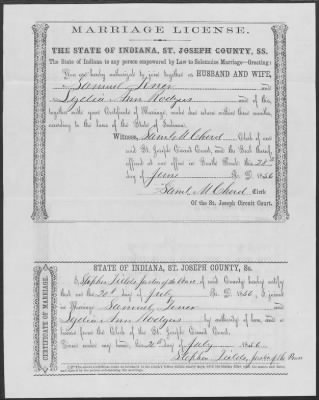 MARRIAGE LICENSE.
THE STATE OF INDIANA, ST. JOSEPH COUNTY, SS.
The State of Indiana to any person empowered by Law to Solemnize Marriage—Greeting:
You are hereby authorized to join together as HUSBAND AND WIFE,
Samuel and
Lydia Ann Hodges and of this,
together with your Certificate of Marriage, make due return within three months,
according to the laws of the State of Indiana.
Witness, Saml M Chord Clerk of our
said St. Joseph Circuit Court, and the Seal thereof,
affixed at our office in South Bend this
day of June A. D. 1856
Saml M Chord Clerk
Of the St. Joseph Circuit Court.
CERTIFICATE OF MARRIAGE
STATE OF INDIANA, ST. JOSEPH COUNTY, Ss.
I, Stephen Fields, Justice of the Peace of said County hereby certify
that on the 20th day of July A. D. 1856, I joined
in Marriage Samuel and
Lydia Ann Hodges by authority of law, and a
license from the Clerk of the St. Joseph Circuit Court.
Given under my hand, this day of July 1856
Stephen Fields, Justice of the Peace